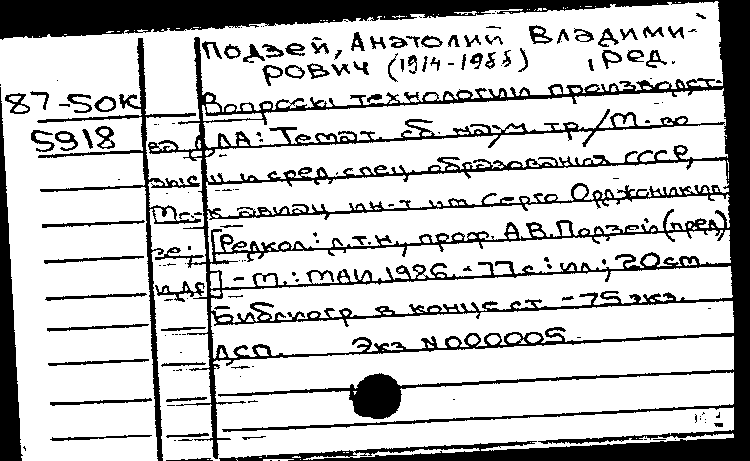 Подзей, Анатолий Владими-
рович (1914-1988), ред.
87-50К Вопросы технологии производст-
5918 ва ДЛА: Темат. сб. науч. тр. / М-во
высш и сред. спец. образования СССР,
Моск авиац ин-т им Серго Орджоникид-
зе; [Редкол.: д.т.н., проф. А.В. Подзей (пред)
и др] - М.: МАИ, 1986. - 77 с.: ил.; 20 см.
Библиогр. в конце ст. - 75 экз.
ДСП. Экз N000005.